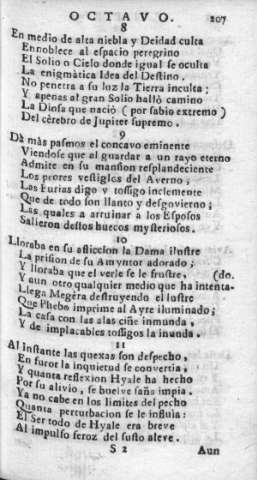 OCTAVO. 207
8
En medio de alta niebla y Deidad culta
Ennoblece al espacio peregrino
El Solio o Cielo donde igual se oculta
La enigmàtica Idea del Destino.
No penetra a su luz la Tierra inculta;
Y apenas al gran Solio hallò camino
La Diosa que naciò (por sabio extremo)
Del cèrebro de Jupiter supremo.
9
Dà màs pasmos el concavo eminente
Viendose que al guardar a un rayo eterno
Admite en su mansion resplandeciente
Los peores vestiglos del Averno;
Las Furias digo y tosigo inclemente
Que de todo son llanto y desgovierno;
Las quales a arruinar a los Esposos
Salieron destos huecos mysteriosos.
10
Lloraba en su afliccion la Dama ilustre
La prision de su Amyntor adorado;
Y lloraba que el verle se le frustre, (do.
Y aun otro qualquier medio que ha intenta-
Llega Megera destruyendo el lustre
Que Phebo imprime al Ayre iluminado;
La casa con las alas ciñe inmunda,
Y de implacables tosigos la inunda.
11
Al instante las quexas son despecho,
En furor la inquietud se convertia,
Y quanta reflexion Hyale ha hecho
Por su alivio, se buelve saña impia.
Ya no cabe en los limites del pecho
Quanta perturbacion se le influìa:
El Ser todo de Hyale era breve
Al impulso feroz del susto aleve.
S 2 Aun